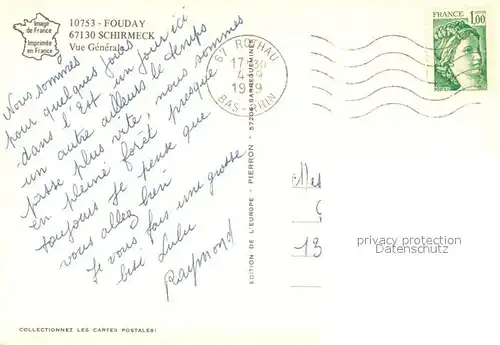 Image
de France
Imprimée
en France
10753 - FOUDAY
67130 SCHIRMECK
Vue Générale
67 ROTHAU
17 H 30
4-9
1979
BAS-RHIN
FRANCE
1,00
POSTES
Nous sommes
pour quelques jours
dans l'Est un jour ici
un autre ailleurs le temps
passe plus vite, nous sommes
en pleine forêt presque
toujours Je pense que
vous allez bien
Je vous fais une grosse
bise Lulu
Raymond
EDITION DE L'EUROPE - PIERRON - 57206 SARREGUEMINES
Mes
13
privacy protection
Datenschutz
COLLECTIONNEZ LES CARTES POSTALES!